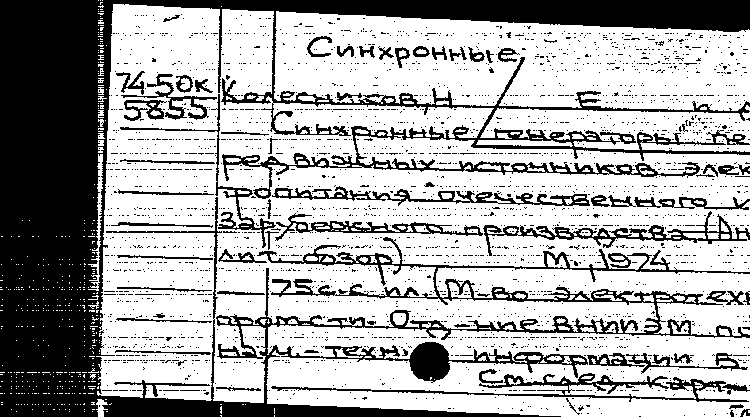 Синхронные
74-50к
5855
Колесников, Н Е
Синхронные генераторы пе
редвижных источников элек
тропитания отечественного и
зарубежного производства. (Ан
лит. обзор) М., 1974.
75 с. с ил. (М-во электротехн
пром-сти. Отд-ние ВНИИЭМ по
науч.-техн. информации в
См. след. карт.